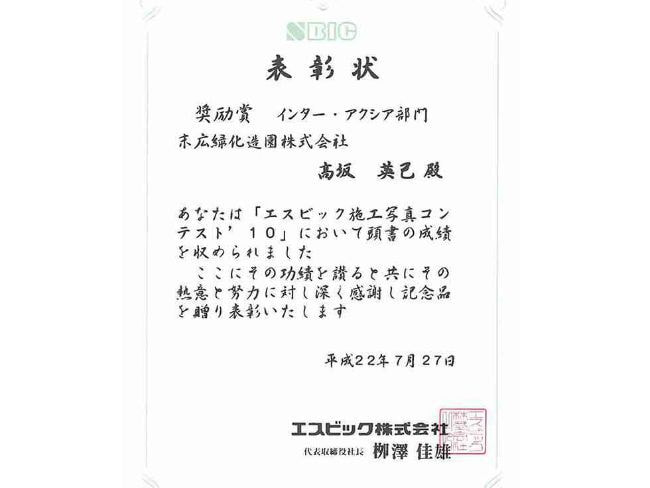 SBIC
表彰状
奨励賞　インター・アクシア部門
末広緑化造園株式会社
高坂　英己 殿
あなたは「エスビック施工写真コン
テスト’１０」において頭書の成績
を収められました
　ここにその功績を讃ると共にその
熱意と努力に対し深く感謝し記念品
を贈り表彰いたします
平成２２年７月２７日
エスビック株式会社
代表取締役社長　栁澤 佳雄